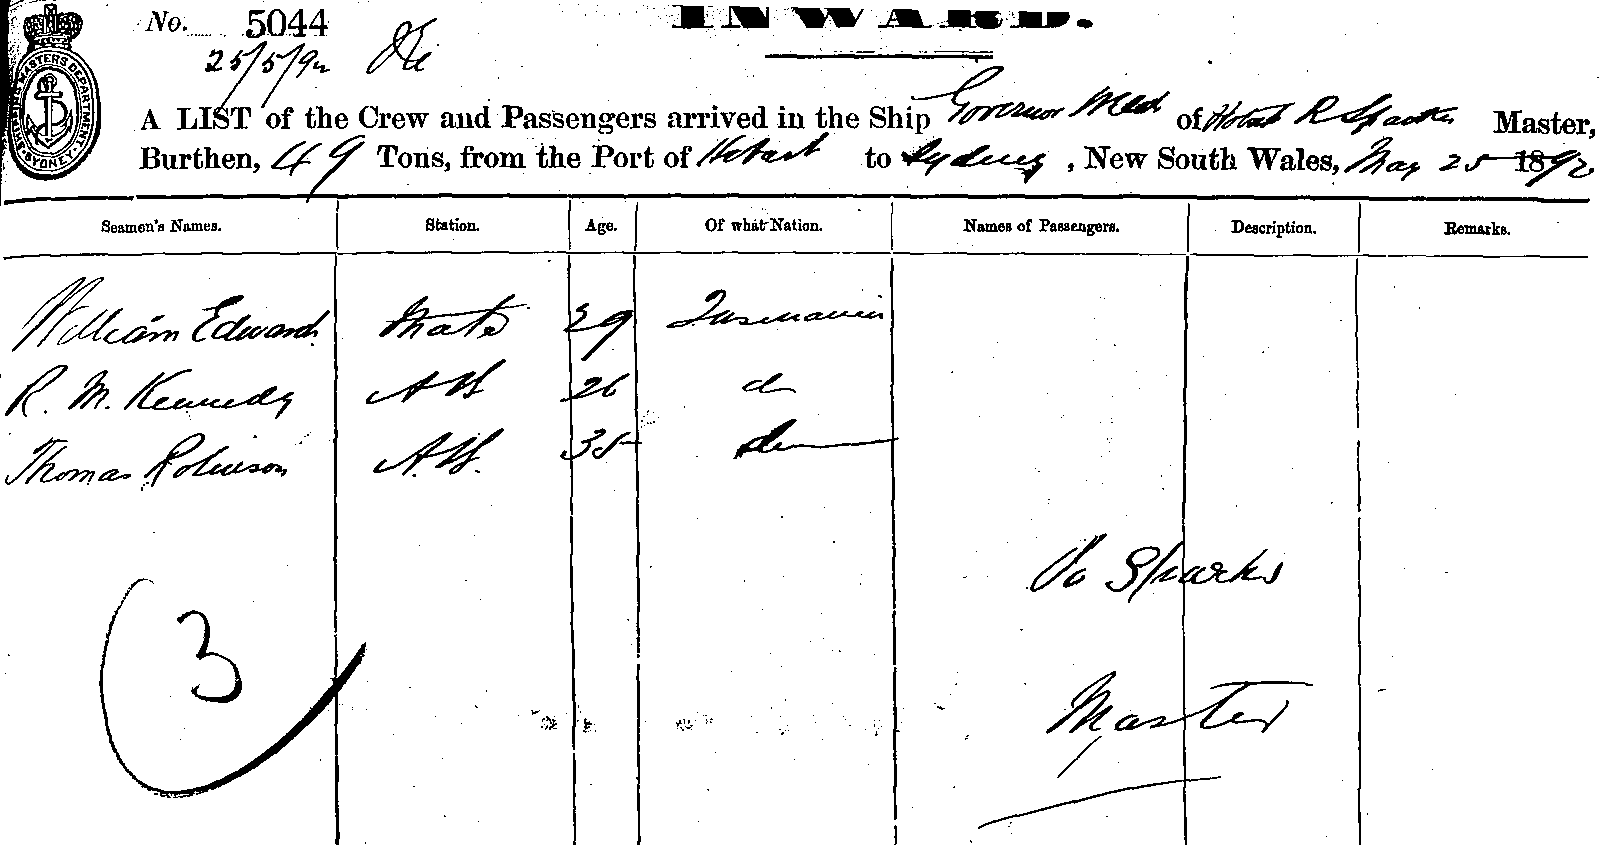 No. 5044
INWARD.
25/5/92
SHIPPING MASTERS DEPARTMENT SYDNEY
A LIST of the Crew and Passengers arrived in the Ship Governor of Hobart R Sparks Master,
Burthen, 49 Tons, from the Port of Hobart to Sydney, New South Wales, May 25 1892
Seamen's Names. Station. Age. Of what Nation. Names of Passengers. Description. Remarks.
William Edwards Mate 29 Tasmania
R. M. Kennedy AB 26 do
Thomas Robinson A.B. 35
Sparks
3
Master